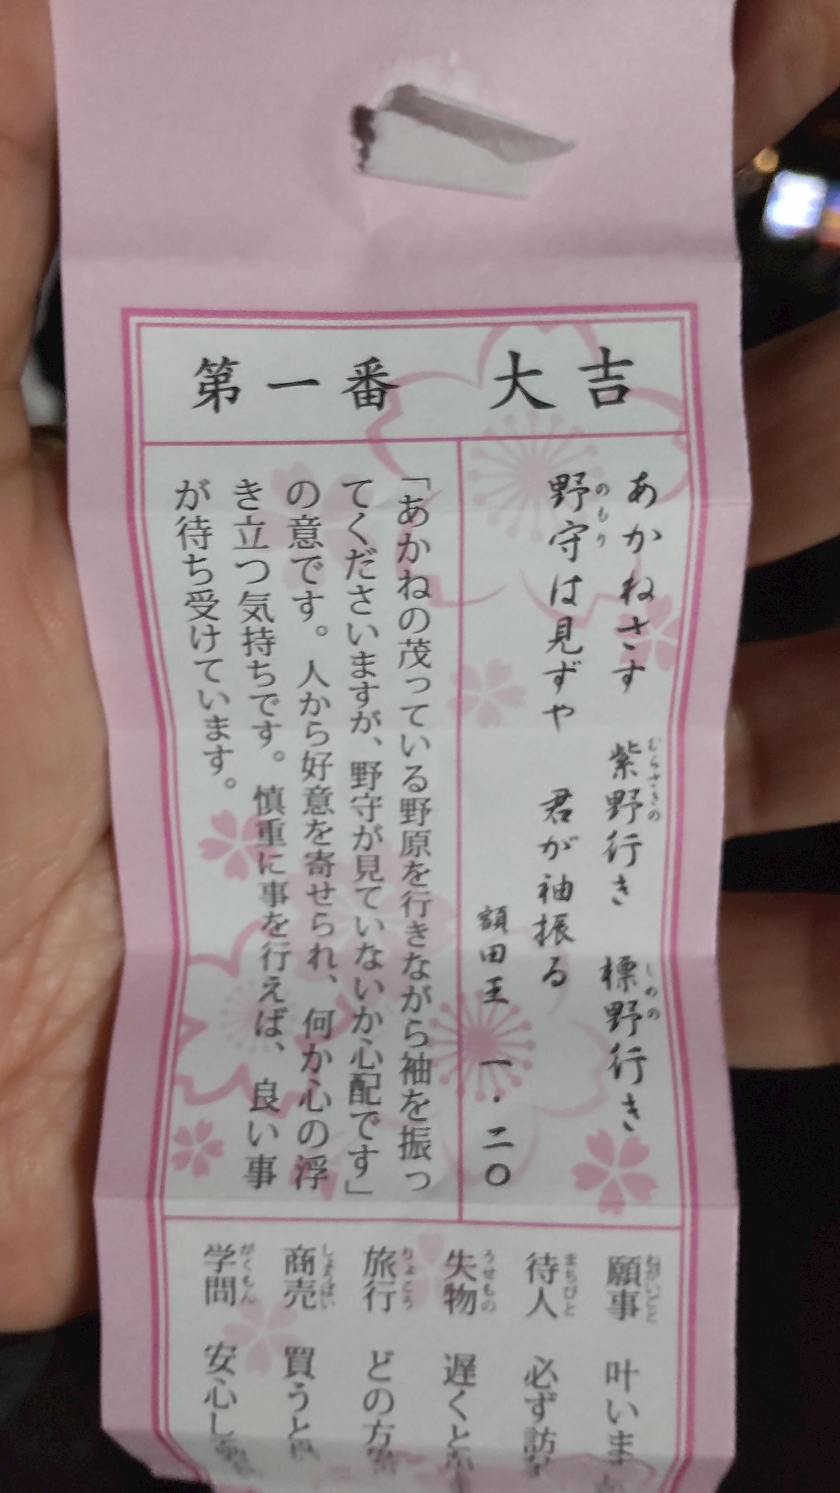 第一番 大吉
あかねさす 紫野行き 標野行き
むらさきの
しめの
野守は見ずや 君が袖振る
のもり
額田王 一・二〇
「あかねの茂っている野原を行きながら袖を振っ
てくださいますが、野守が見ていないか心配です」
の意です。人から好意を寄せられ、何か心の浮
き立つ気持ちです。慎重に事を行えば、良い事
が待ち受けています。
願事 叶いま
ねがいごと
待人 必ず訪
まちびと
失物 遅くと
うせもの
旅行 どの方
りょこう
商売 買うと
しょうばい
学問 安心し
がくもん